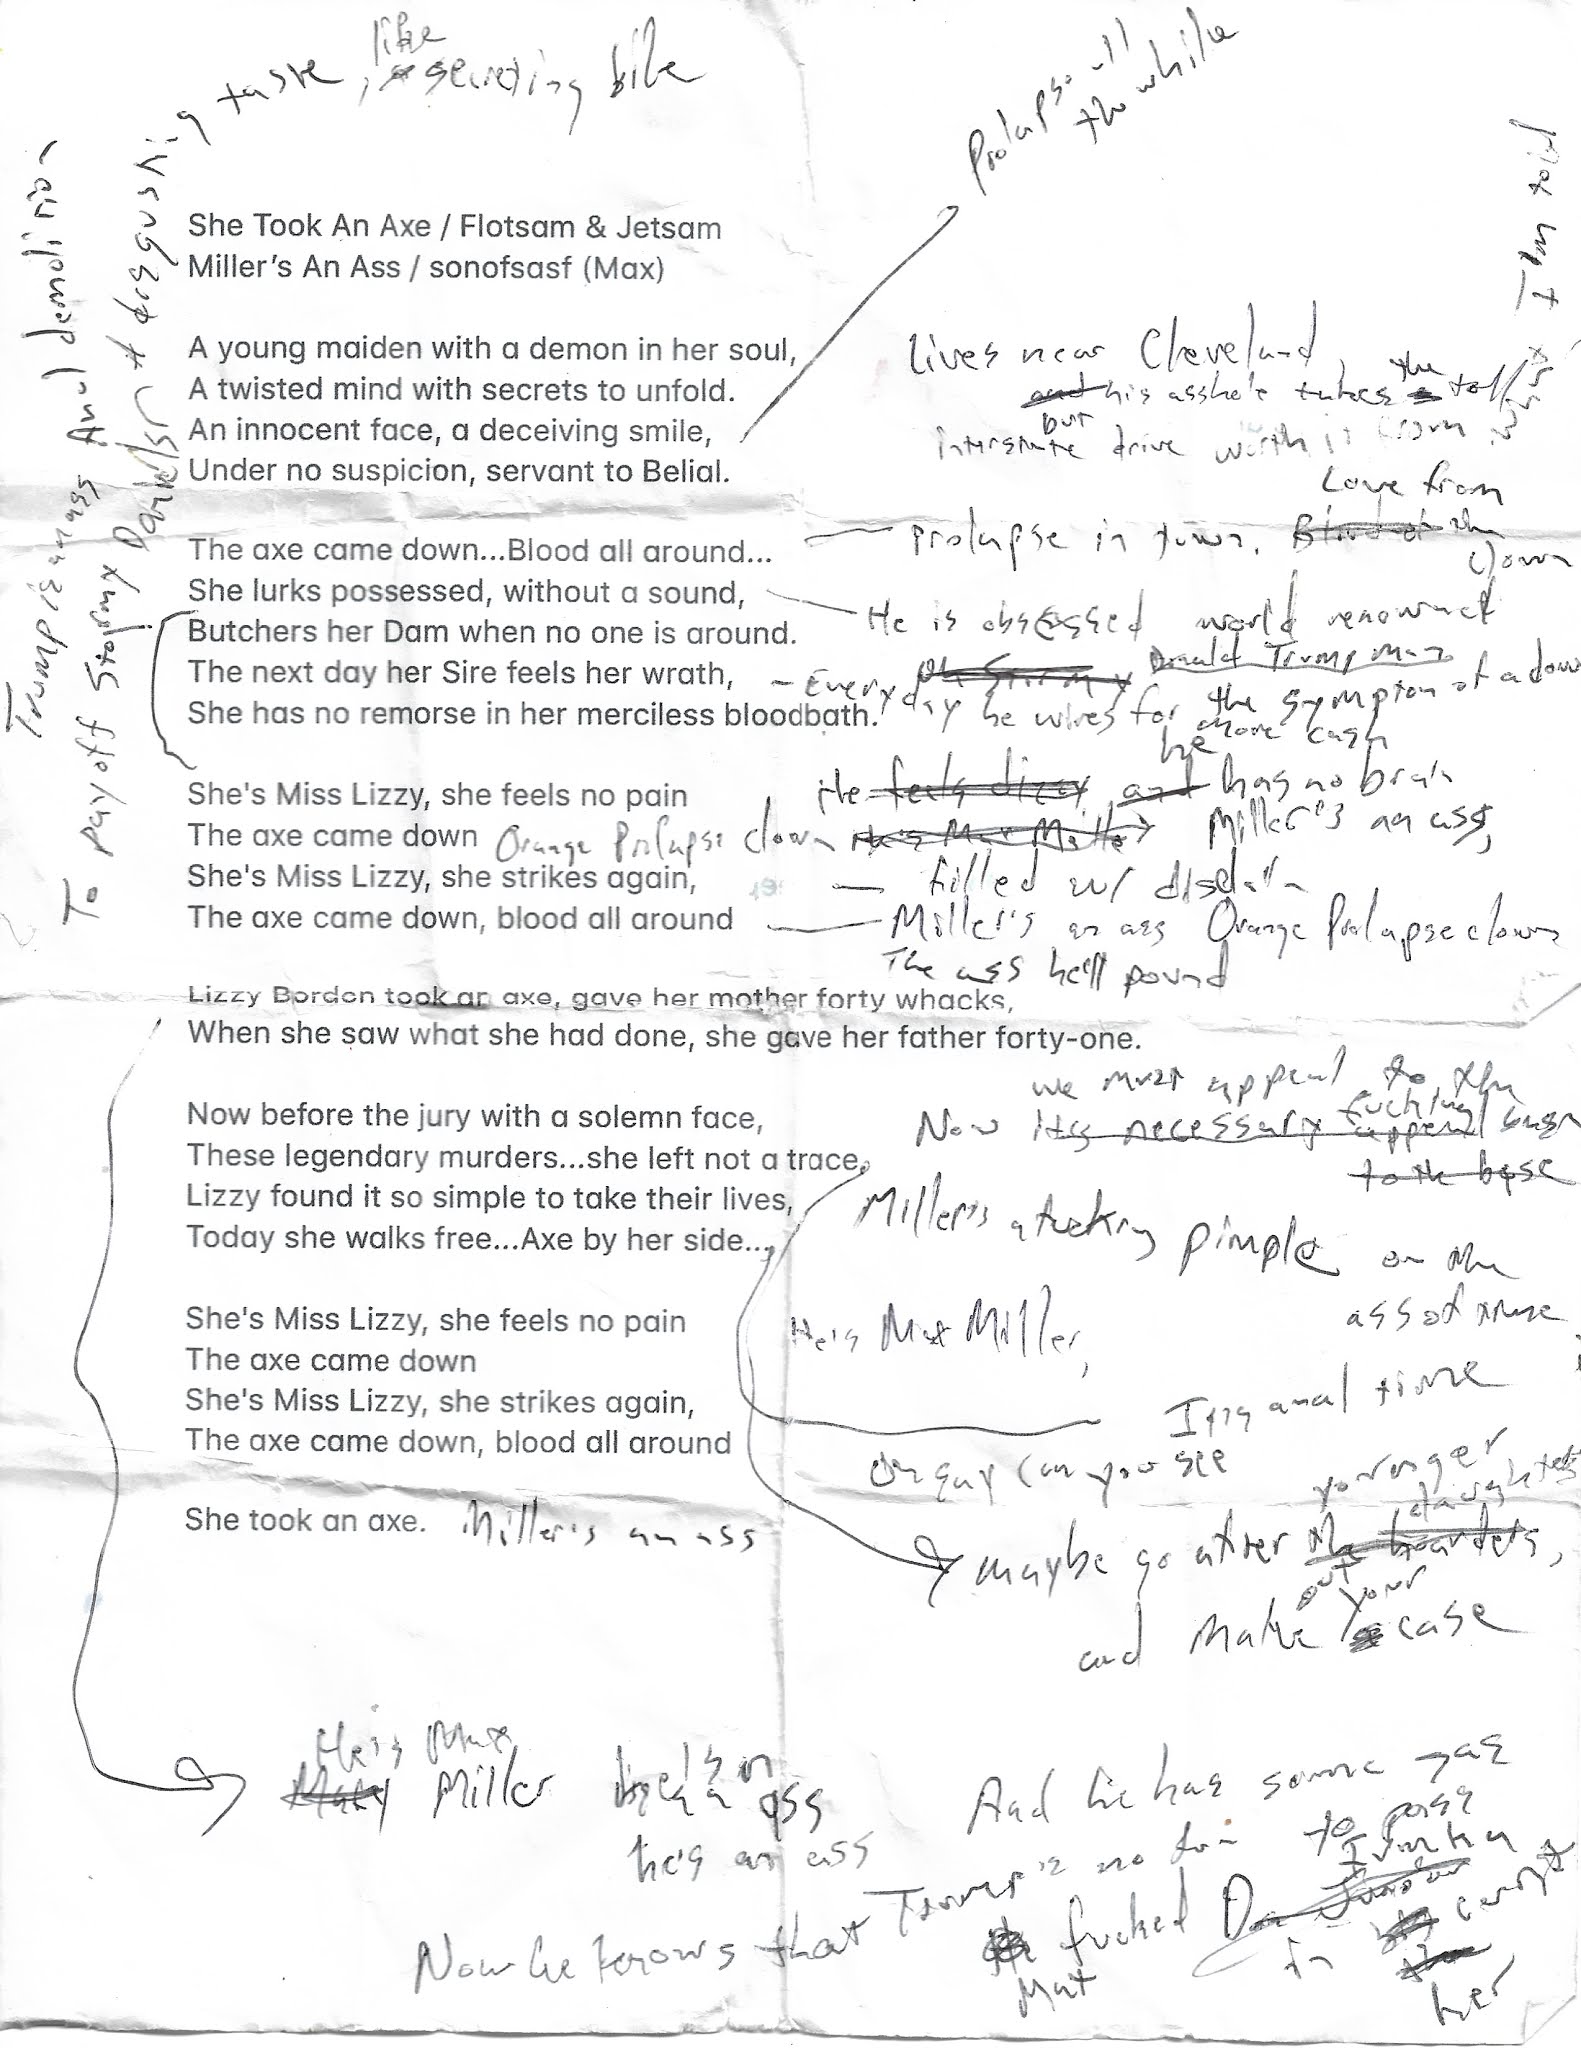 taste, like secreting bile
Prolapse all
the while
I'm told
She Took An Axe / Flotsam & Jetsam
Miller's An Ass / sonofsasf (Max)
A young maiden with a demon in her soul,
A twisted mind with secrets to unfold.
An innocent face, a deceiving smile,
Under no suspicion, servant to Belial.
lives near Cleveland,
but his asshole takes the toll
interstate drive worth it from
Love from
The axe came down...Blood all around...
prolapse in town. clown
She lurks possessed, without a sound,
He is obsessed world renowned
Butchers her Dam when no one is around.
Donald Trump man
The next day her Sire feels her wrath,
Everyday he wires for the symptom of a clown
She has no remorse in her merciless bloodbath.
more cash
She's Miss Lizzy, she feels no pain
He feels dizzy and he has no brain
The axe came down Orange Prolapse clown He's Max Miller Miller's an ass,
She's Miss Lizzy, she strikes again,
filled w/ disdain
The axe came down, blood all around
Miller's an ass Orange Prolapse clown
The ass he'll pound
Lizzy Borden took an axe, gave her mother forty whacks,
When she saw what she had done, she gave her father forty-one.
we must appeal to the
Now before the jury with a solemn face,
Now its necessary appeal fucking base
to the base
These legendary murders...she left not a trace,
Lizzy found it so simple to take their lives,
Miller's a fucking pimple on the
Today she walks free...Axe by her side...
ass of
She's Miss Lizzy, she feels no pain
He's Max Miller,
The axe came down
She's Miss Lizzy, she strikes again,
It's anal time
The axe came down, blood all around
Oh say can you see
younger
daughters
She took an axe. Miller's an ass
maybe go after
and make out your case
He is Max
Miller he's an ass
he's an ass
And he has some gas
to pass
Now he knows that Trump's no fan
Max fucked Ivanka
in
her
Trump is anass Anal demolition
To payoff Stormy Daniels A disgusting